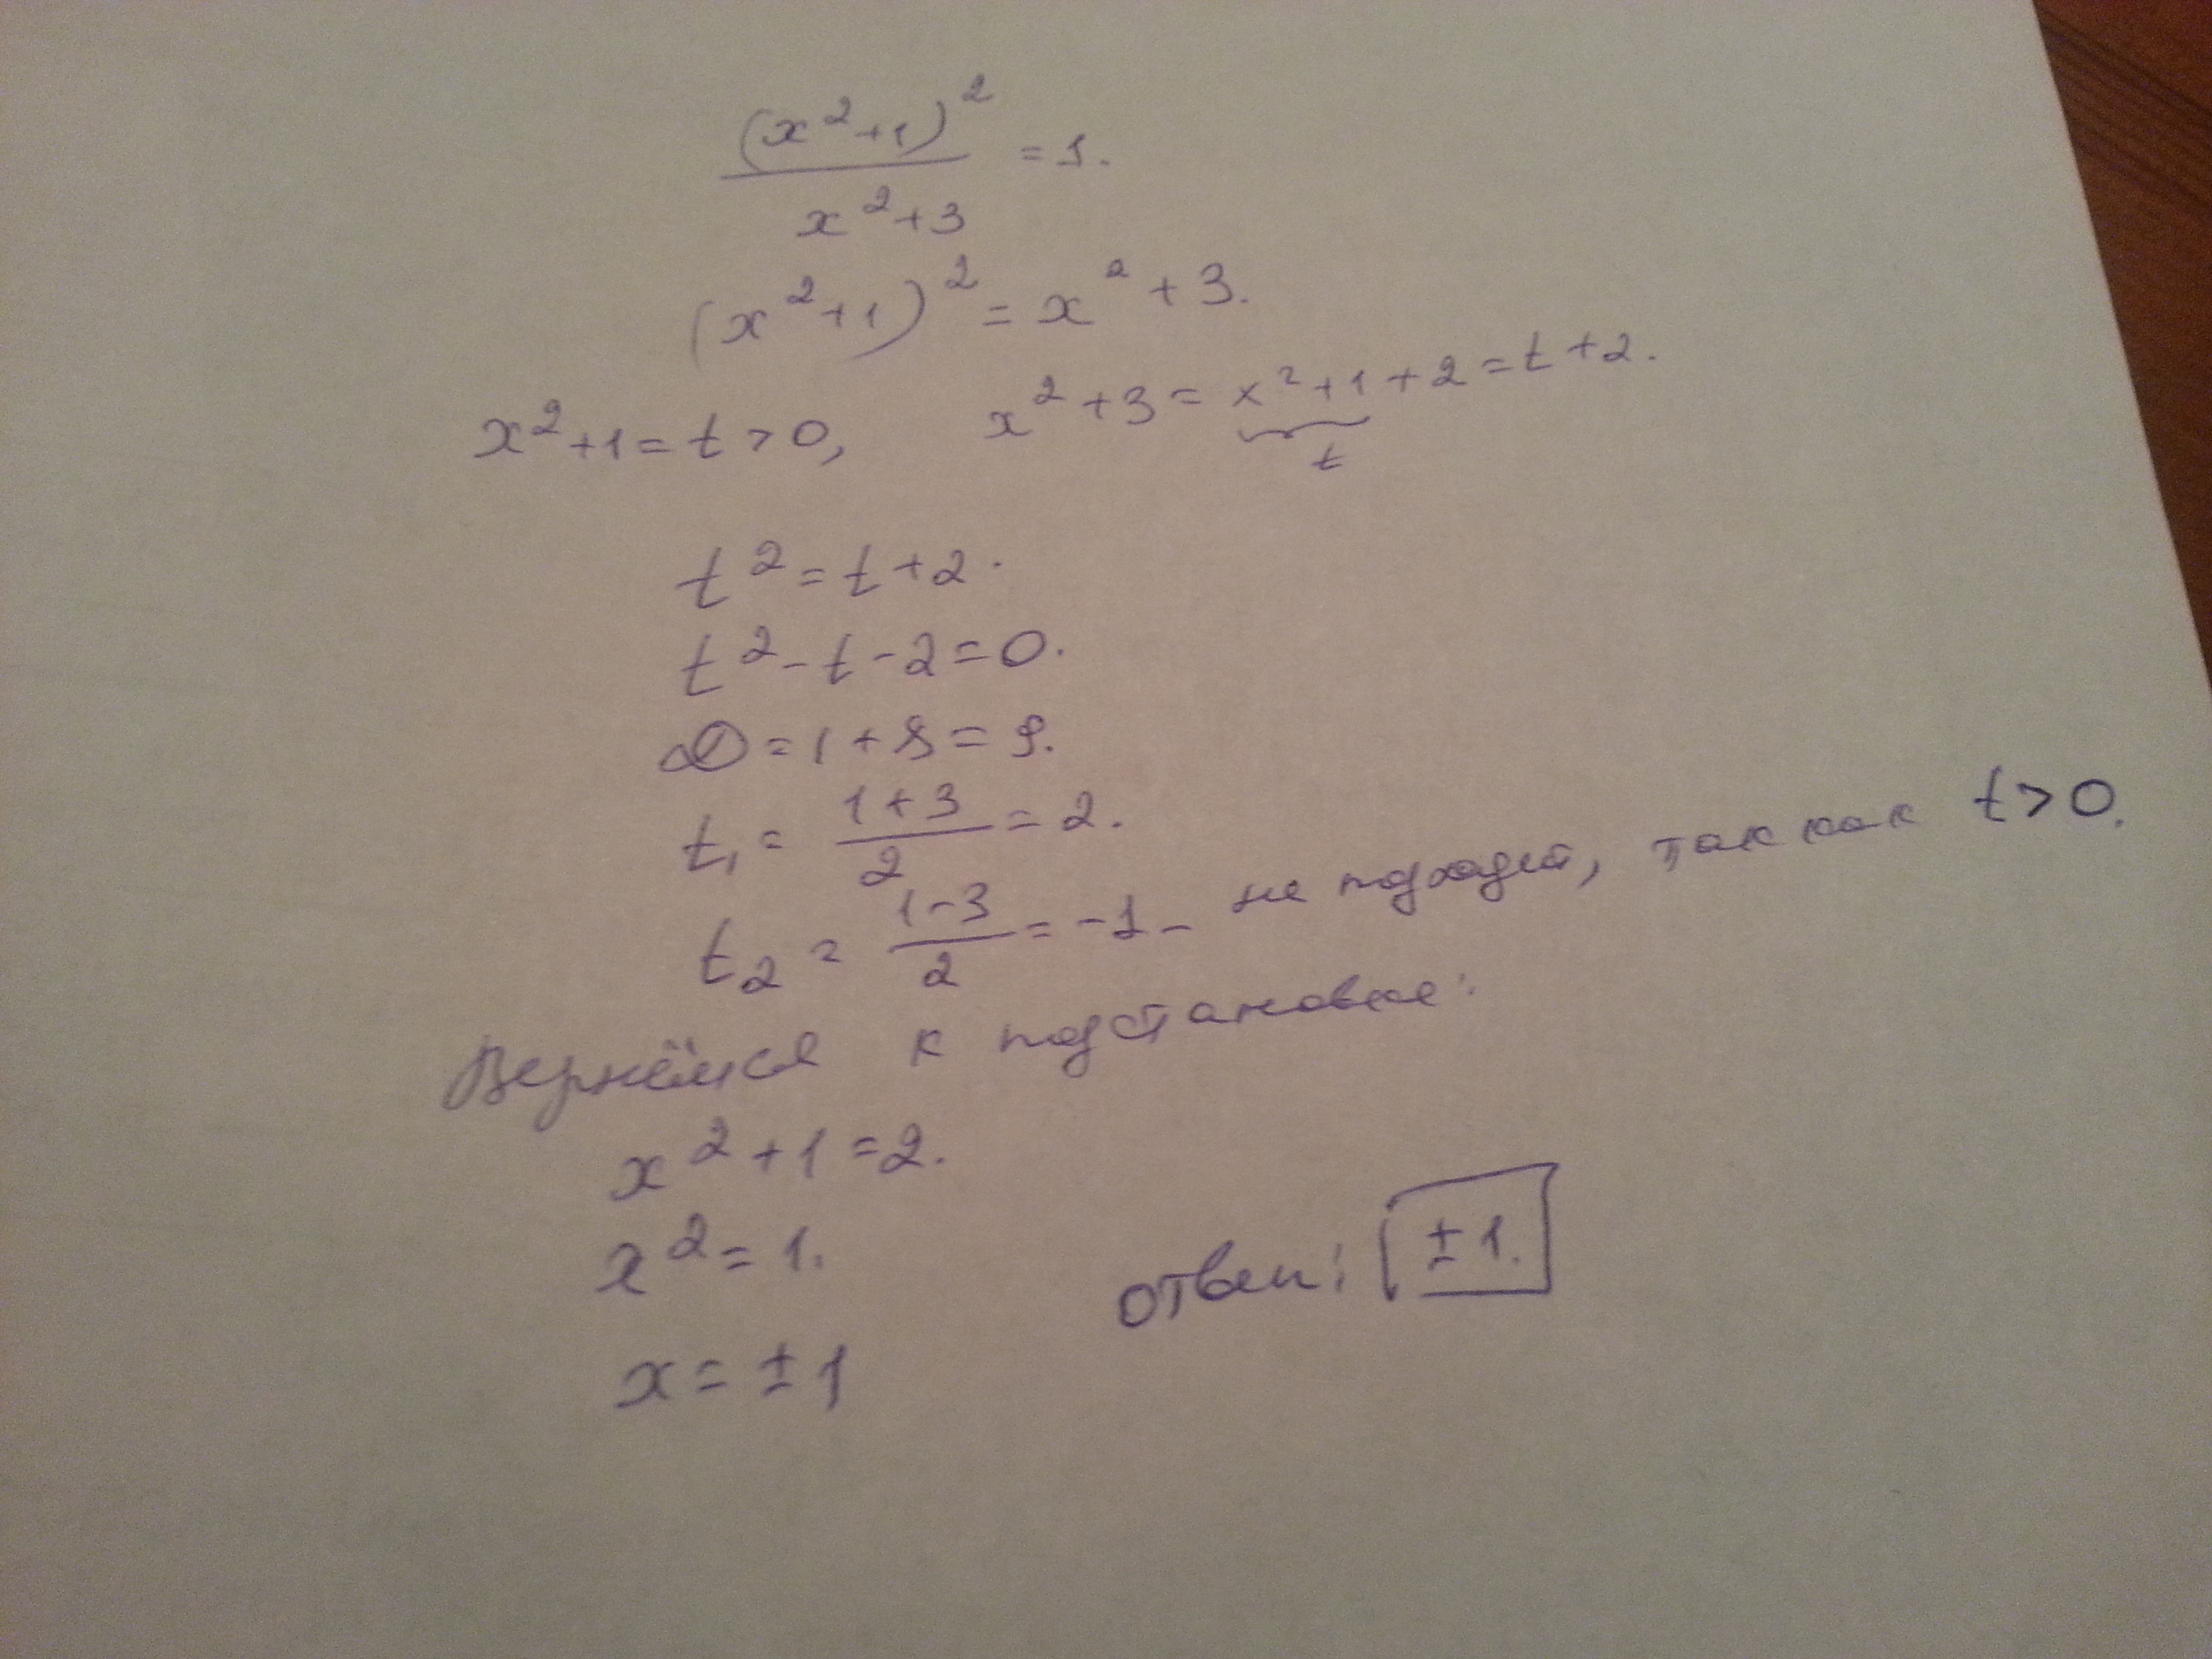 (x²+1)² / (x²+3) = 1.
(x²+1)² = x² + 3.
x²+1 = t > 0, x²+3 = x²+1+2 = t+2.
t
t² = t+2.
t² - t - 2 = 0.
D = 1 + 8 = 9.
t₁ = (1+3)/2 = 2.
t₂ = (1-3)/2 = -1 - не подходит, так как t > 0.
Вернёмся к подстановке:
x² + 1 = 2.
x² = 1.
Ответ: ± 1.
x = ± 1